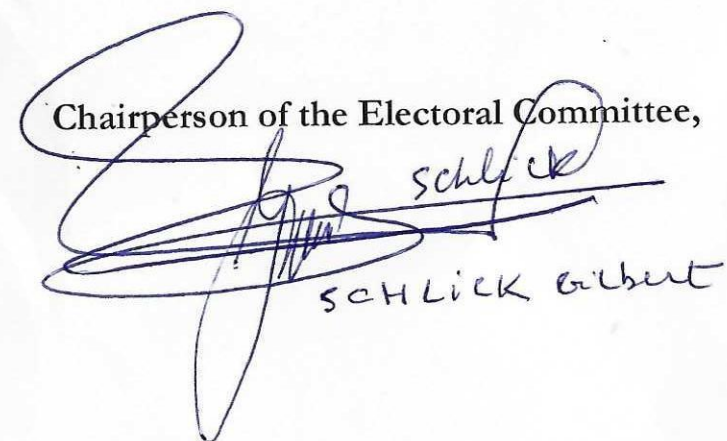 Chairperson of the Electoral Committee,
schlick
SCHLICK Gilbert